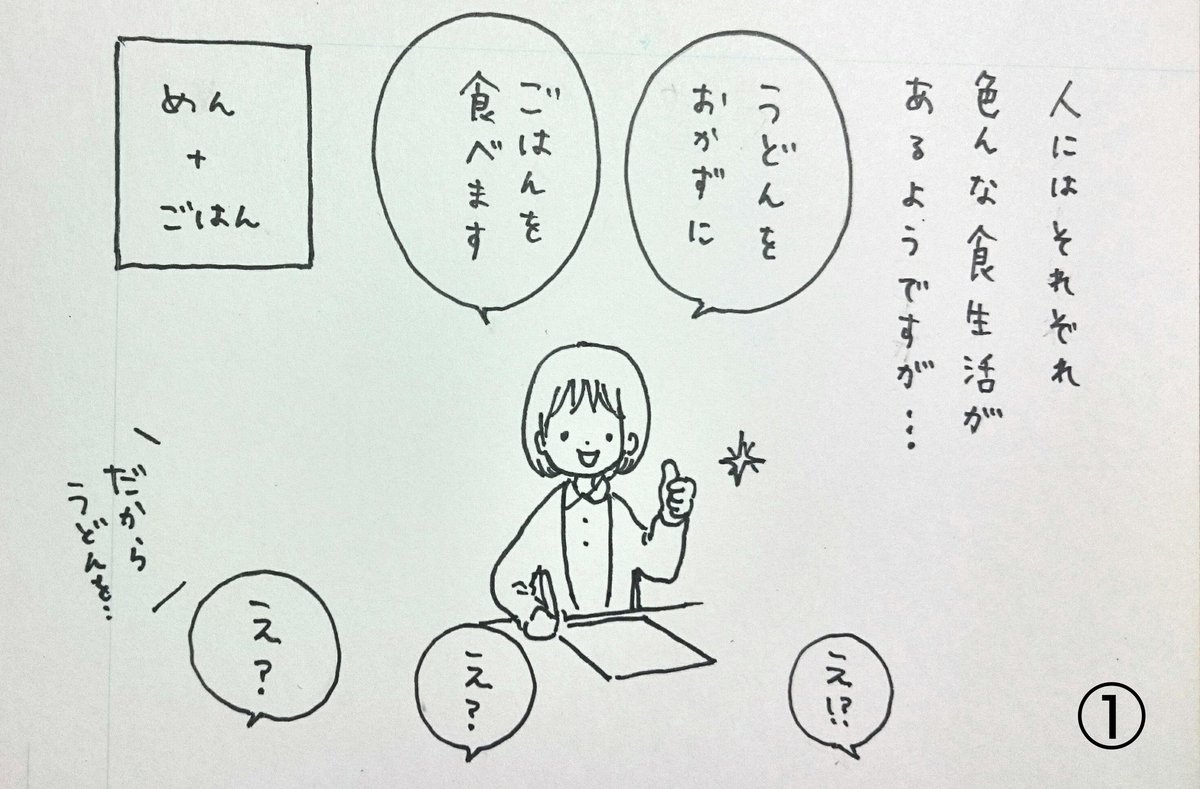 人にはそれぞれ
色んな食生活が
あるようですが…
うどんを
おかずに
ごはんを
食べます
めん
+
ごはん
だから
うどんを…
え!?
え?
え?
①